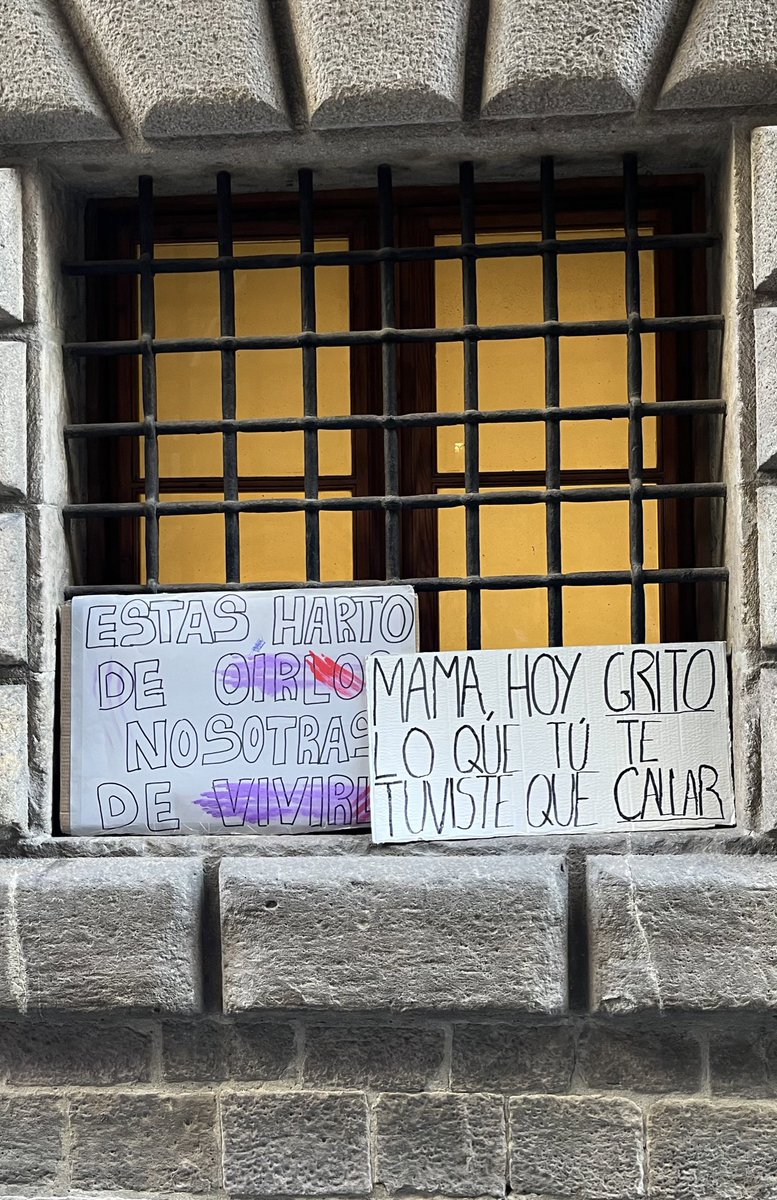 ESTAS HARTO
DE OIRLO
NOSOTRAS
DE VIVIRL
MAMA, HOY GRITO
LO QÚE TÚ TE
TUVISTE QUE CALLAR